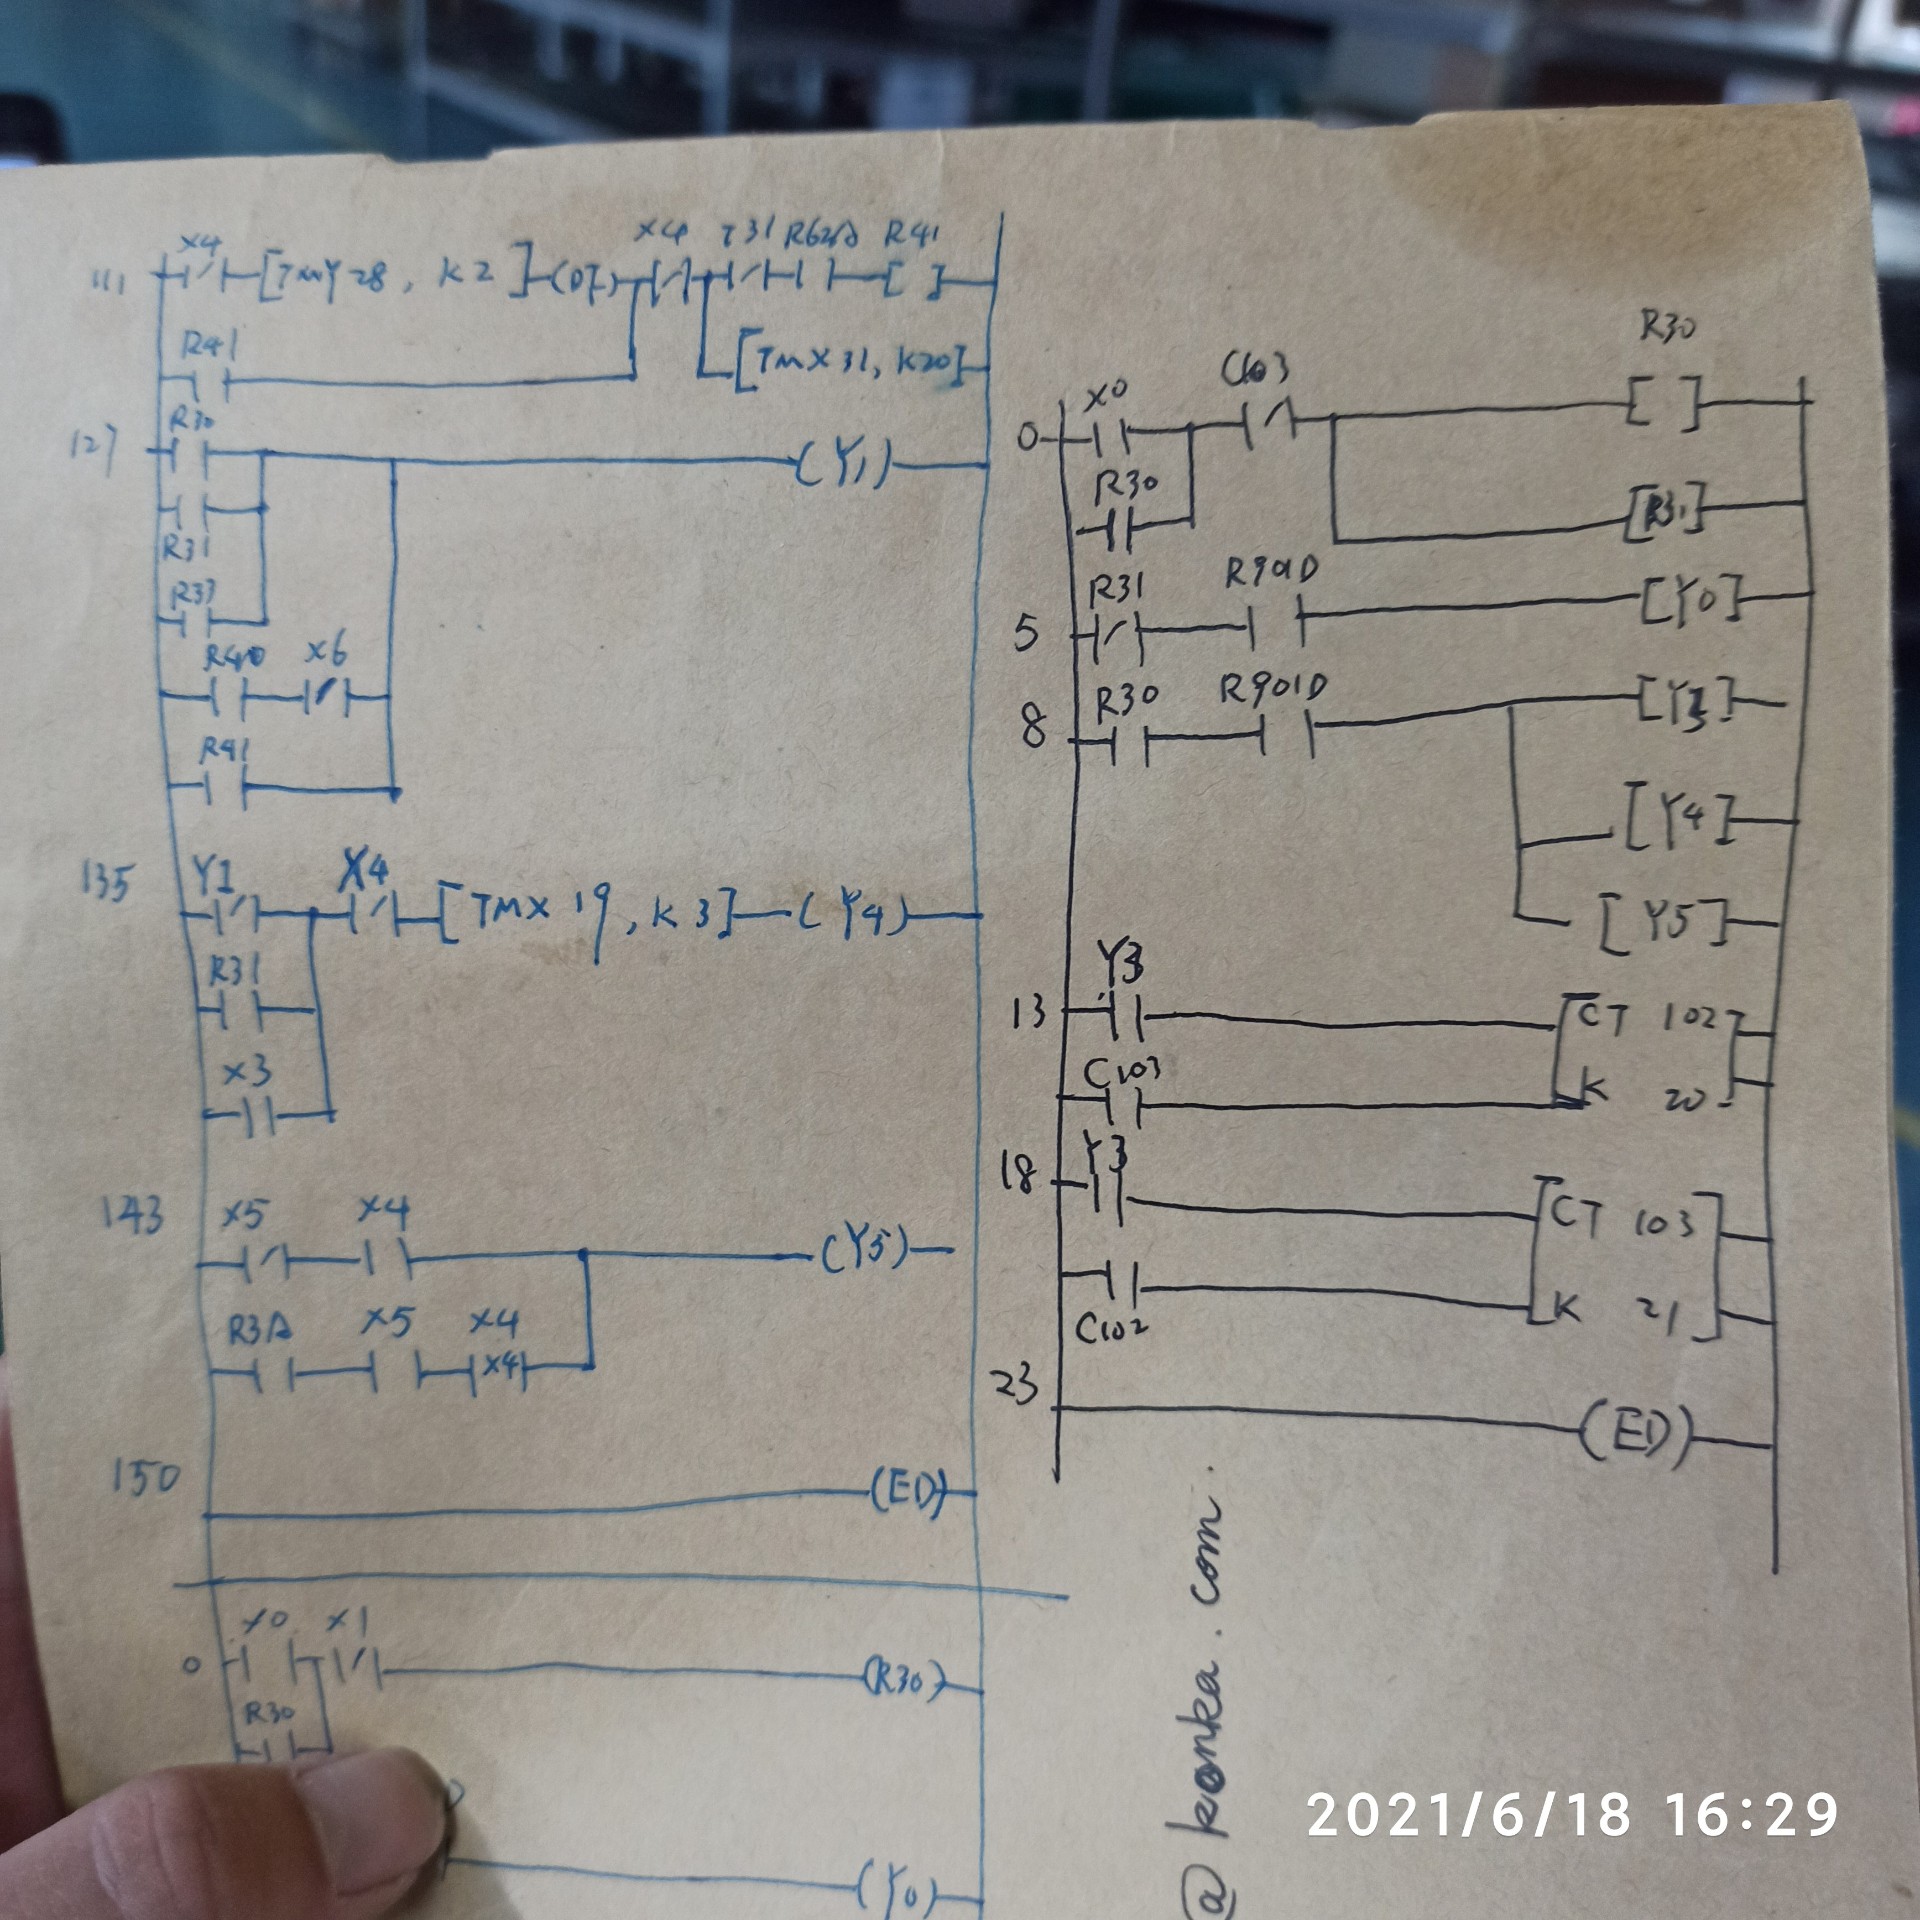 X4 X4 T31 R62A R41
111 [TMY 28, K2] (DF) [ ]
R41
[TMX 31, K20]
R30
127 (Y1)
R31
R33
R40 X6
R41
135 Y1 X4 [TMX 19, K3] (Y4)
R31
X3
143 X5 X4
(Y5)
R3A X5 X4
X4
150 (ED)
X0 X1
0 (R30)
R30
(Y0)
R30
X0 C103
0 [ ]
R30
[R31]
R31 R901D
5 [Y0]
R30 R901D
8 [Y3]
[Y4]
[Y5]
Y3
13 CT 102
C103
K 20
Y3
18 CT 103
K 21
C102
23
(ED)
@konka.com.
2021/6/18 16:29